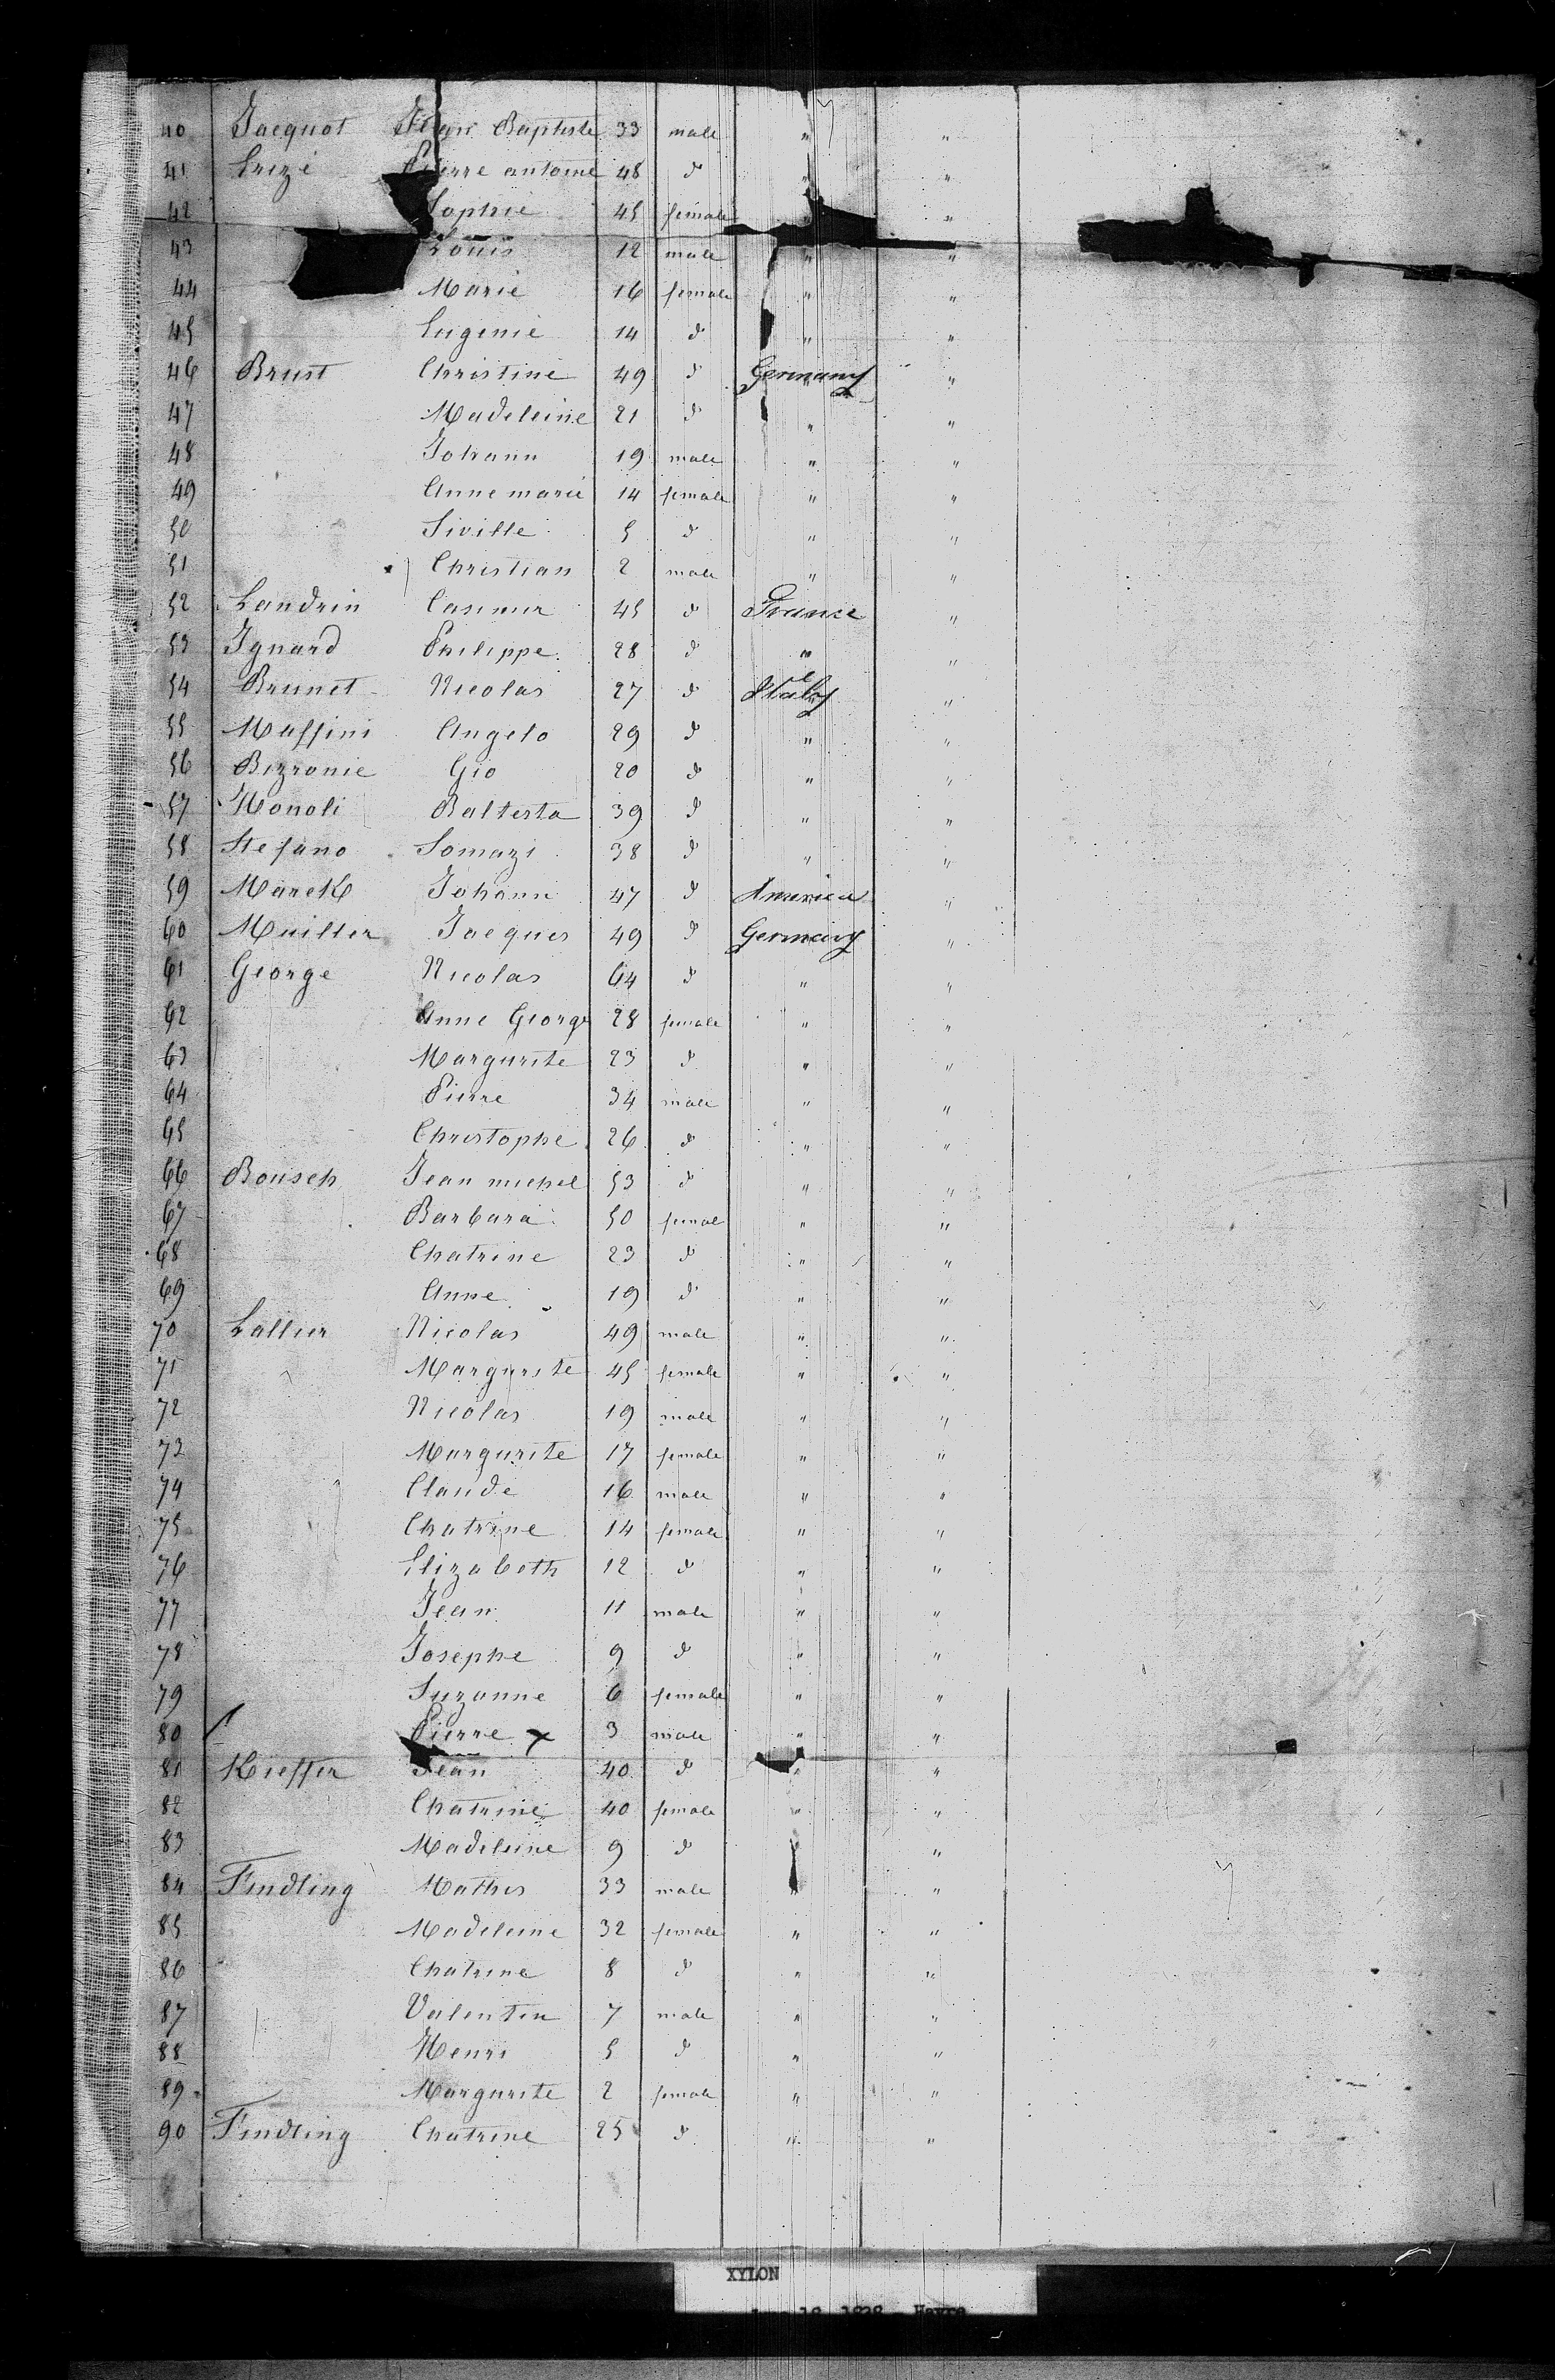 40 Jacquot Jean Baptiste 33 male " "
41 Lrizé Pierre antoine 48 d " "
42 Sophie 45 female "
43 Louis 12 male " "
44 Marie 16 female " "
45 Eugenie 14 d " "
46 Brust Christine 49 d Germany "
47 Madeleine 21 d " "
48 Johann 19 male " "
49 Anne marie 14 female " "
50 Siville 5 d " "
51 Christian 2 male " "
52 Landrin Casimir 45 d France "
53 Ignard Philippe 28 d " "
54 Brunet Nicolas 27 d Italy "
55 Maffini Angelo 29 d " "
56 Bizronie Gio 20 d " "
57 Monoli Baltesta 39 d " "
58 Stefano Somazi 38 d " "
59 Marek Johann 47 d America "
60 Muilter Jacques 49 d Germany "
61 George Nicolas 64 d " "
62 Anne George 28 female " "
63 Margurite 23 d " "
64 Pierre 34 male " "
65 Christophe 26 d " "
66 Bousch Jean michel 53 d " "
67 Barbara 50 femal " "
68 Chatrine 23 d " "
69 Anne 19 d " "
70 Lallier Nicolas 49 male " "
71 Margurite 45 female " "
72 Nicolas 19 male " "
73 Margurite 17 female " "
74 Claude 16 male " "
75 Chatrine 14 female " "
76 Elizabeth 12 d " "
77 Jean 11 male " "
78 Josephe 9 d " "
79 Suzanne 6 female " "
80 Pierre x 3 male " "
81 Kieffer Jean 40 d " "
82 Chatrine 40 female " "
83 Madeleine 9 d "
84 Findling Mathis 33 male " "
85 Madeleine 32 female " "
86 Chatrine 8 d " "
87 Valentin 7 male " "
88 Henri 5 d " "
89 Margurite 2 female " "
90 Findling Chatrine 25 d " "
XYLON
18, 1828 - Havre